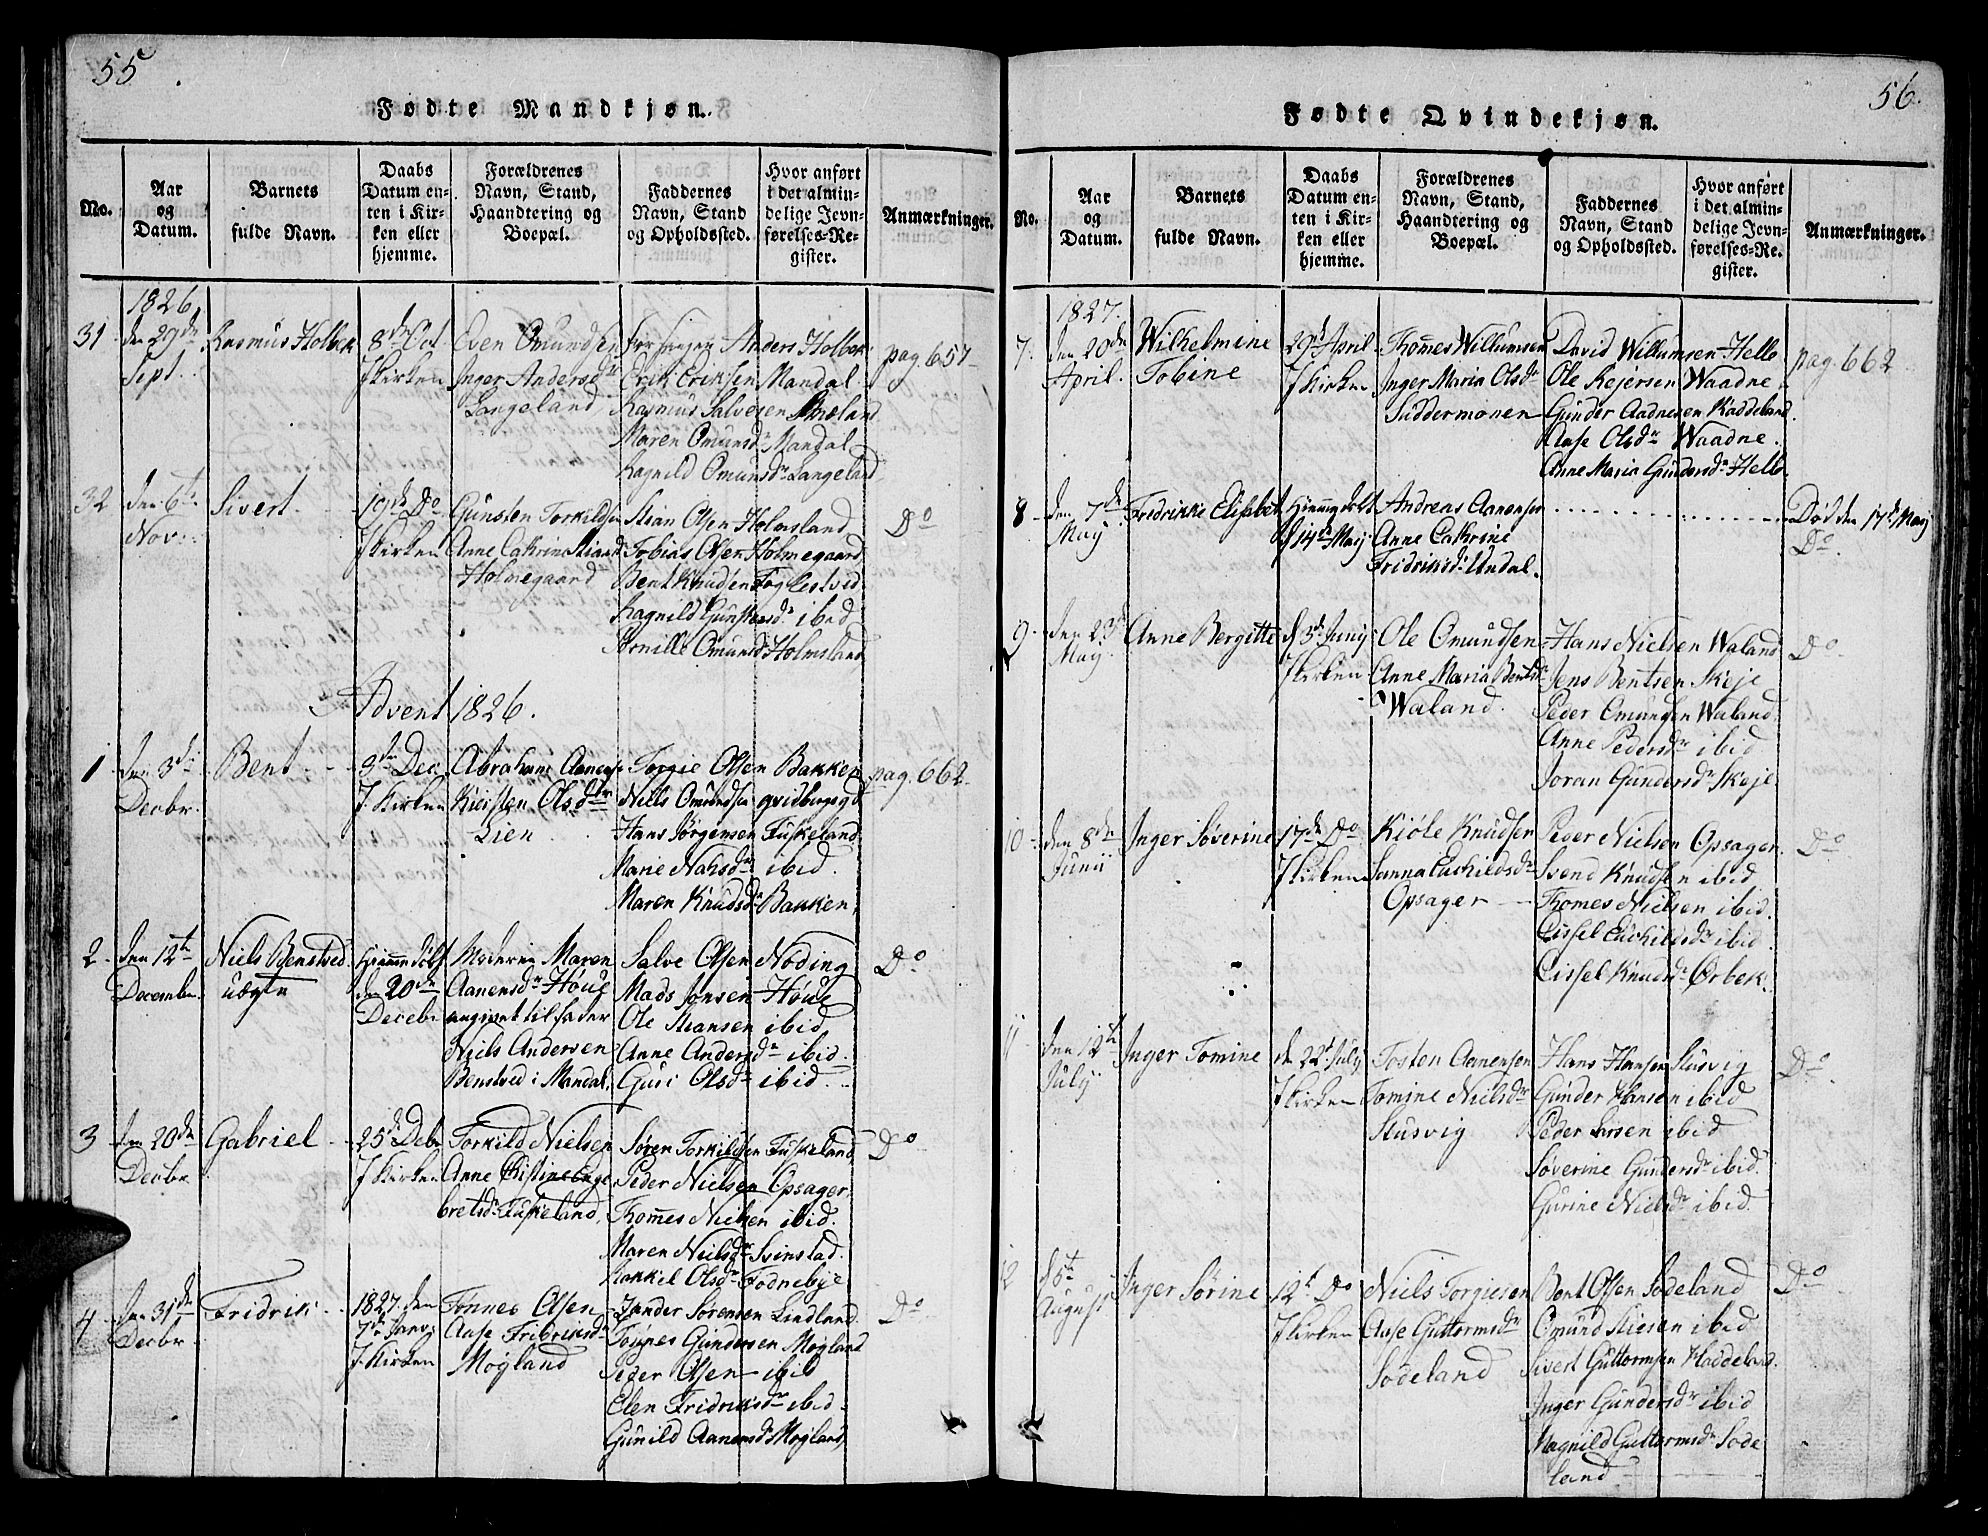 55
Fødte Mandkjøn.
No.
Aar
og
Datum.
Barnets
fulde Navn.
Daabs
Datum en-
ten i Kir-
ken eller
hjemme.
Forældrenes
Navn, Stand,
Haandtering og
Boepæl.
Faddernes
Navn, Stand
og Opholdssted.
Hvor anført
i det almin-
delige Jevn-
førelses-Re-
gister.
Anmærkninger.
1826
31
den 29de
Sept.
Rasmus Holbek
8de Oct.
J Kirken
Even Omundsen
Inger Andersdr
Langeland
Anders Holbek
Erik Eriksen Mandal
Rasmus Salvesen
Maren Omundsdr Mandal
Ragnild Omundsdr Langeland
pag. 657
32
den 6te
Nov.
Sivert
19de Do
J Kirken
Gunsten Torkildsen
Anne Cathrine
Holmegaard
Stian Olsen Holmsland
Tobias Olsen Holmegaard
Bent Knudsen Foglestved
Ragnild Gunstensdr ibid
Pernille Omundsd Holmsland
Do
Advent 1826.
1
den 3de
Decbr.
Bent
3de Dec.
J Kirken
Abraham Aanens
Kirsten Olsdtr
Lien
Torgie Olsen Bakken
Niels Omundsen
Hans Jørgensen Fuskeland
Marie ibid.
Maren Knudsdr Bakken
pag. 662
2
den 12te
Decembr.
Niels Benstved
uægte
Hjemme døbt
den 20de
Decebr
Moderen Maren
Aanensdr Høue
angivet til fader
Niels Andersen
Benstved i Mandal
Salve Olsen Nøding
Mads Jonsen Høue
Ole Stiansen ibid
Anne Andersdr ibid
Guri Olsdr ibid.
Do
3
den 20de
Decbr
Gabriel
25de Debr
J Kirken
Torkild Nielsen
Anne Christine Enge
bretsdr Fuskeland
Søren Torkildsen Fuskeland
Peder Nielsen Opsager
Thomes Nielsen ibid.
Maren Nielsdr Svinstad.
Rakkel Olsdr Fodnebye
Do
4
den 31de
Decbr
Fridrik
1827 den
7de Janv.
J. Kirken
Tønnes Olsen
Aase Fridriksdr
Møgland
Zander Sørensen Lindland
Tønnes Gundersen Møgland
Peder Olsen ibid
Elen Fridriksdr ibid
Gunild Aanensdr Møgland
Do
56.
Fødte Qvindekjøn.
No.
Aar
og
Datum.
Barnets
fulde Navn.
Daabs
Datum en-
ten i Kir-
ken eller
hjemme.
Forældrenes
Navn, Stand,
Haandtering og
Boepæl.
Faddernes
Navn, Stand
og Opholdssted.
Hvor anført
i det almin-
delige Jevn-
førelses-Re-
gister.
Anmærkninger.
1827.
7
den 20de
April.
Wilhelmine
Tobine
29de April
J Kirken
Thomes Willumsen
Inger Maria Olsdr
Suddermonen
David Willumsen Helle
Ole Rejersen Waadne
Gunder Aadnesen Haddeland
Aase Olsdr Waadne.
Anne Maria Gundersdr Helle
pag. 662
8
den 7de
May
Fridrikke Elisabet
Hjemmedøbt
d 14de May
Andreas Aanensen
Anne Cathrine
Fridriksdr Undal.
Død den 17de May
Do
9
den 23de
May
Anne Bergitte
d 5te Junij
J Kirken
Ole Omundsen
Anne Maria Bentsdr
Waland.
Hans Nielsen Waland
Jens Bentsen Skeje
Peder Omundsen Waland
Anne Pedersdr ibid
Joran Gundersdr Skeje
Do
10
den 8de
Junii
Inger Søverine
17de Do
J Kirken
Kiøle Knudsen
Opsager
Peder Nielsen Opsager
Svend Knudsen ibid
Thomes Nielsen ibid.
Cissel ibid
Cissel Knudsdr Ørbek.
Do
11
den 12te
Julij
Inger Tomine
d 22de July
J Kirken
Tosten Aanensen
Tomine Nielsdr
Stusvig
Hans Hansen Stusvig
Gunder Hansen ibid
Peder Larsen ibid
Søverine Gundersdr ibid.
Gurine Nielsdr ibid.
Do
12
d 5te
August
Inger Sørine
12te Do
J Kirken
Niels Torgiesen
Aase Guttormsdr
Sodeland
Bent Olsen Sodeland
Omund Stiesen ibid
Sivert Guttormsen Haddeland.
Inger Gundersdr ibid
Magnild Guttormsdr Sode
land
Do